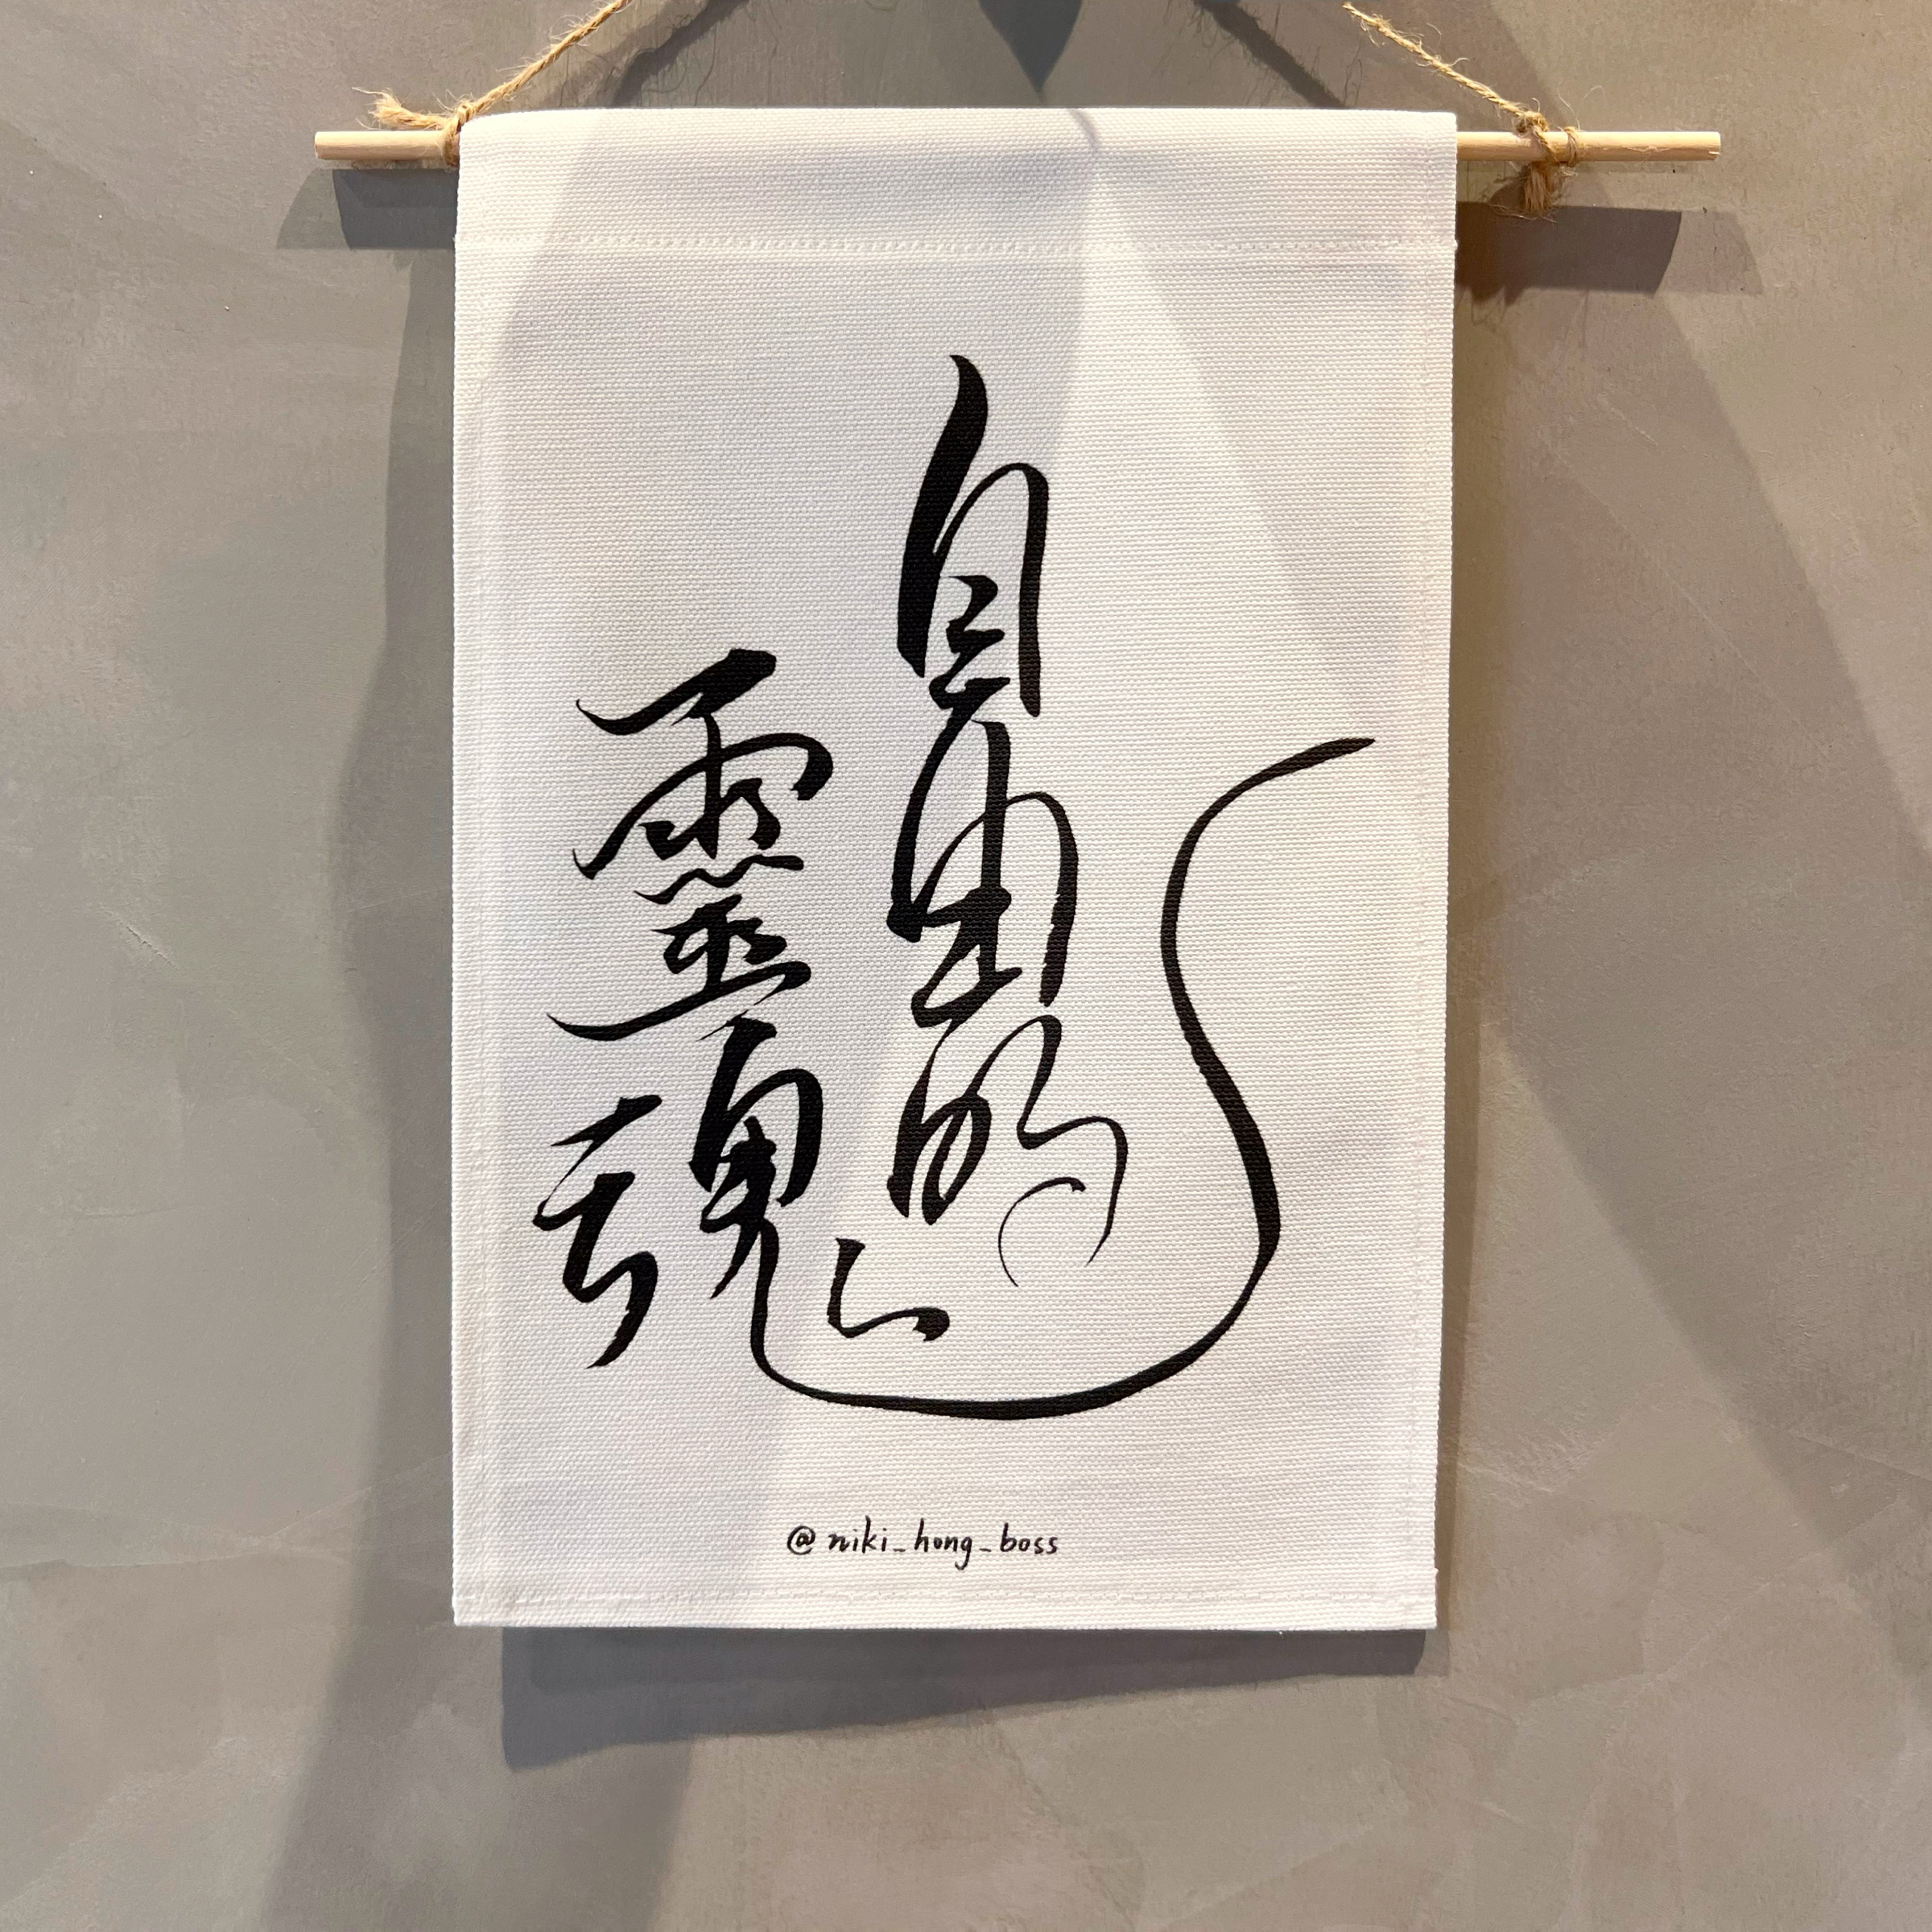 自由的
靈魂
@niki_hong_boss